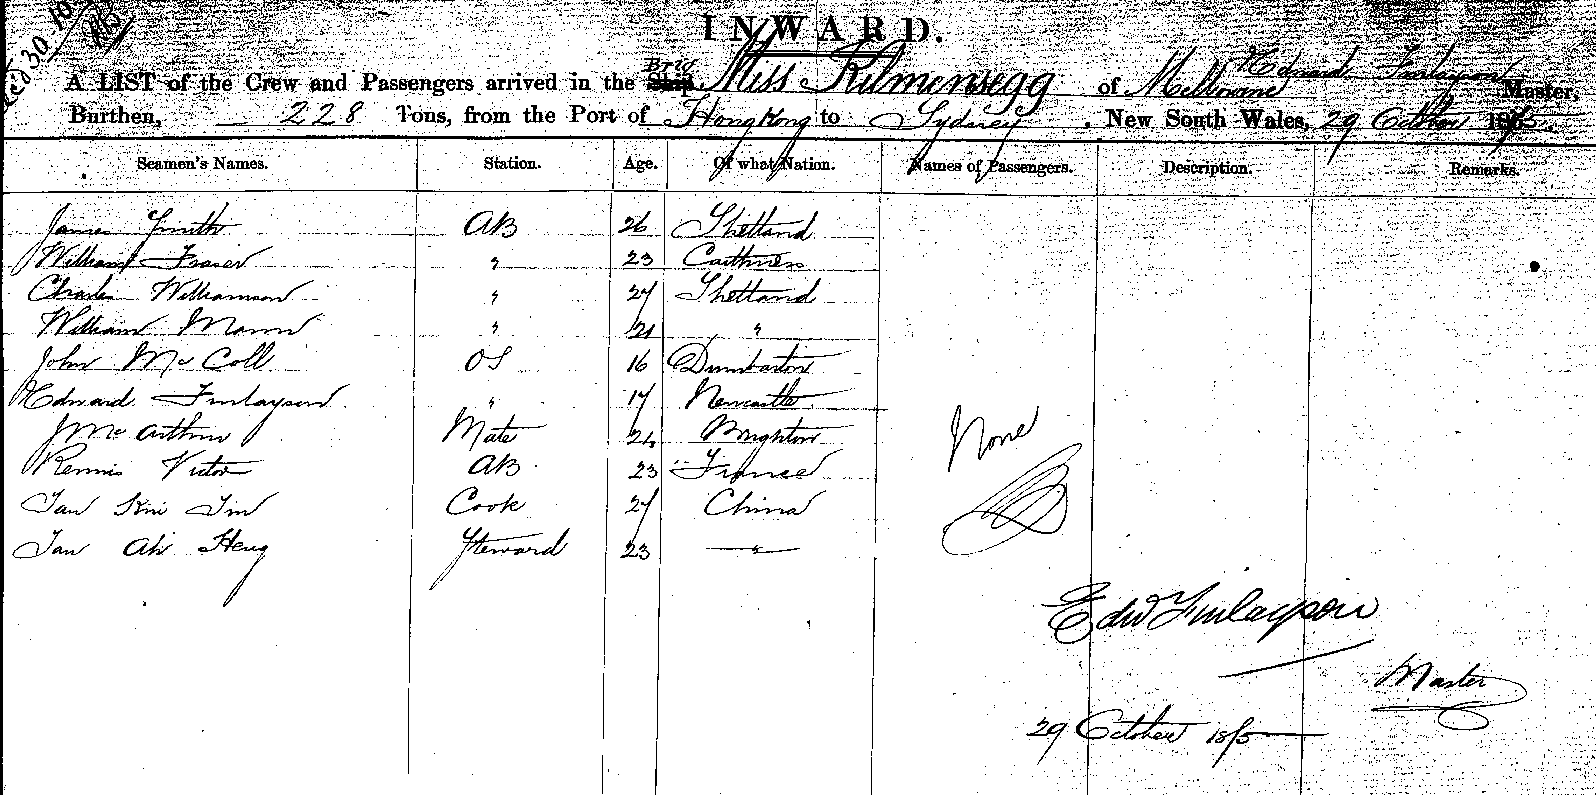 Recd 30.10
INWARD.
A LIST of the Crew and Passengers arrived in the Ship Brig Miss Kilmensegg of Melbourne Edward Finlayson Master,
Burthen, 228 Tons, from the Port of Hong Kong to Sydney, New South Wales, 29 October 1875.
Seamen's Names. Station. Age. Of what Nation. Names of Passengers. Description. Remarks.
James Smith AB 26 Shetland
William Fraser " 23 Caithness
Charles Williamson " 27 Shetland
William Mann " 21 "
John McColl OS 16 Dumbarton
Edward Finlayson " 17 Newcastle
J McArthur Mate 24 Brighton
Rennis Victor AB 23 France
Tan Kin Tin Cook 27 China
Tan Ah Heng Steward 23 "
None
Edw Finlayson
Master
29 October 1875